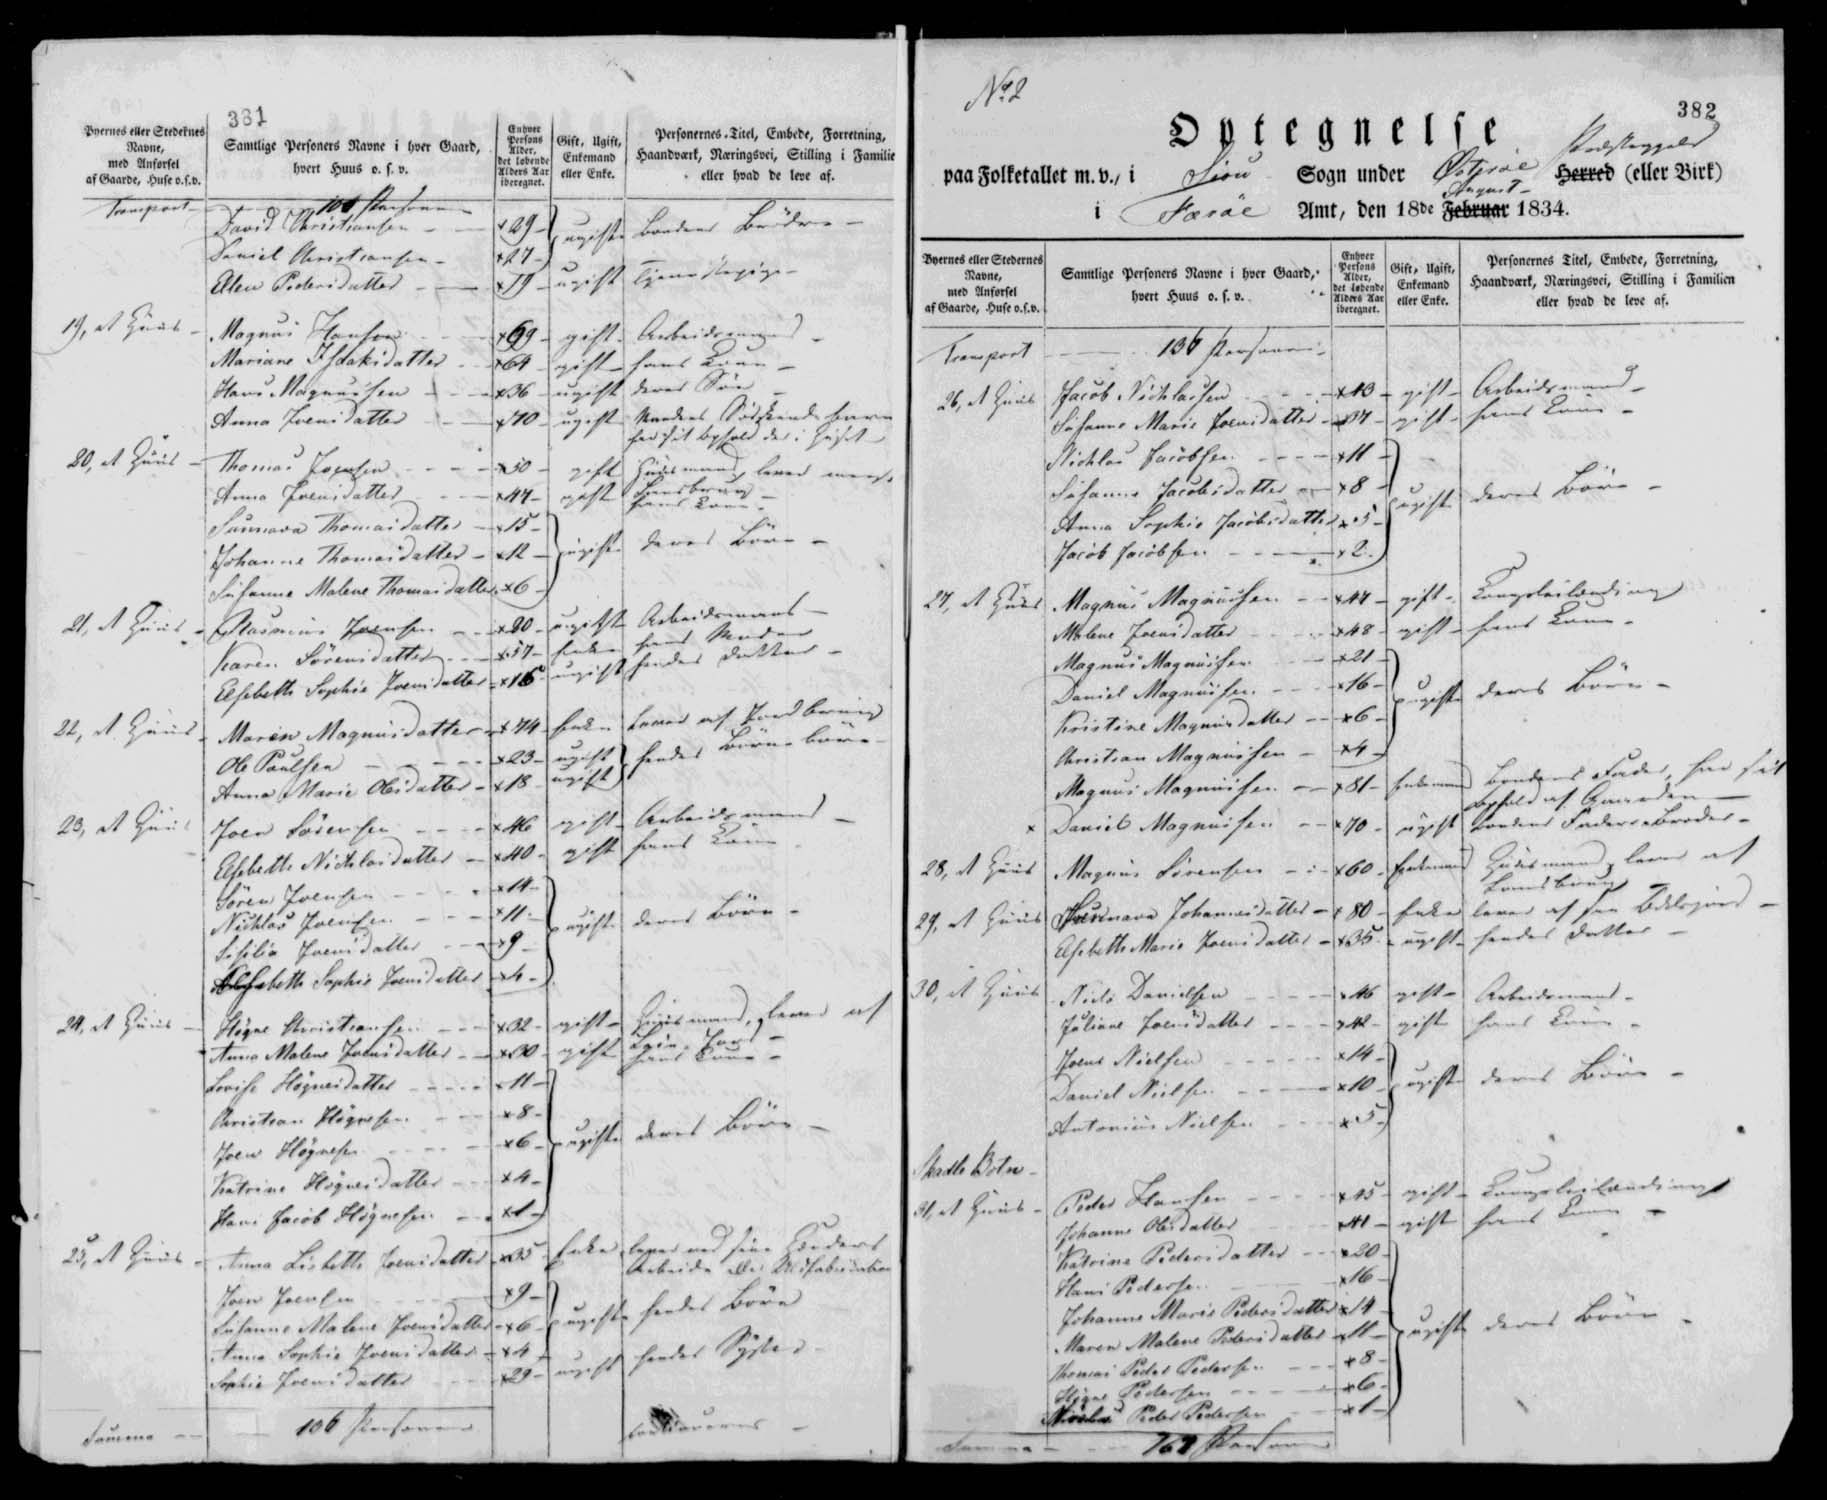 381
Byernes eller Stedernes Navne, med Anførsel af Gaarde, Huse o.s.v. | Samtlige Personers Navne i hver Gaard, hvert Huus o. s. v. | Enhver Persons Alder, det løbende Alders Aar iberegnet. | Gift, Ugift, Enkemand eller Enke. | Personernes Titel, Embede, Forretning, Haandværk, Næringsvei, Stilling i Familien eller hvad de leve af.
Transport 106 Personer
David Christiansen 29 ugifte Bondens Brödre
Daniel Christiansen 27
Ellen Pedersdatter 19 ugift Tjenestepige
19, et Huus Magnus Hansen 69 gift Arbeidsmand
Mariane Isdaksdatter 64 gift hans Kone
Hans Magnussen 36 ugift deres Sön
Anna Joensdatter 70 ugift
20, et Huus Thomas Joensen 50 gift Huusmand, lever
Anna Joensdatter 47 gift hans Kone
Sunnava Thomasdatter 15 ugifte deres Börn
Johanne Thomasdatter 12
Susanne Malene Thomasdatter 6
21, et Huus Rasmus Joensen 20 ugift Arbeidsmand
Karen Sörensdatter 57 Enke hans Moder
Elsebeth Sophie Joensdatter 16 ugift hendes Datter
22, et Huus Maren Magnusdatter 74 Enke Lever af Jordbrug
Ole Paulsen 23 ugift hendes Börnebörn
Anna Marie Olesdatter 18 ugift
23, et Huus Joen Sörensen 46 gift Arbeidsmand
Elsebeth Nichlasdatter 40 gift hans Kone
Sören Joensen 14
Nichlas Joensen 11 ugifte deres Börn
Sisilia Joensdatter 9
Elsebeth Sophie Joensdatter 4
24, et Huus Högne Christiansen 32 gift Huusmand, lever af
Anna Malene Joensdatter 30 gift hans Kone
Lovise Högnesdatter 11
Christian Högnesen 8
Joen Högnesen 6 ugifte deres Börn
Katrine Högnesdatter 4
Hans Jacob Högnesen 1
25, et Huus Anna Lisbeth Joensdatter 35 Enke lever ved sine Hænders Arbeide
Joen Joensen 9
Susanne Malene Joensdatter 6 ugifte hendes Börn
Anna Sophie Joensdatter 4
Sophie Joensdatter 29 ugift hendes Syster
Summa 136 Personer
No 2
382
Optegnelse
paa Folketallet m. v., i Siou Sogn under Österöe Herred (eller Birk)
i Færöe Amt, den 18de Februar August 1834.
Byernes eller Stedernes Navne, med Anførsel af Gaarde, Huse o.s.v. | Samtlige Personers Navne i hver Gaard, hvert Huus o. s. v. | Enhver Persons Alder, det løbende Alders Aar iberegnet. | Gift, Ugift, Enkemand eller Enke. | Personernes Titel, Embede, Forretning, Haandværk, Næringsvei, Stilling i Familien eller hvad de leve af.
Transport 136 Personer
26, et Huus Jacob Nichlassen 43 gift Arbeidsmand
Susanne Marie Joensdatter 37 gift hans Kone
Nichlas Jacobsen 11
Susanne Jacobsdatter 8 ugifte deres Börn
Anna Sophie Jacobsdatter 5
Jacob Jacobsen 2
27, et Huus Magnus Magnussen 47 gift Kongsleilænding
Malene Joensdatter 48 gift hans Kone
Magnus Magnussen 21
Daniel Magnussen 16 ugifte deres Börn
Kristine Magnusdatter 6
Christian Magnussen 4
Magnus Magnussen 81 Enkemand Bondens Fader, har sit Ophold af Gaarden
Daniel Magnussen 70 ugift Bondens Faders Broder
28, et Huus Magnus Sörensen 60 Enkemand Huusmand, lever af Landbrug
29, et Huus Sunnava Johannesdatter 80 Enke lever af
Elsebeth Marie Joensdatter 35 ugift hendes Datter
30, et Huus Niels Danielsen 46 gift Arbeidsmand
Juliane Joensdatter 42 gift hans Kone
Joens Nielsen 14
Daniel Nielsen 10 ugifte deres Börn
Antonius Nielsen 5
Botn
31, et Huus Peder Hansen 45 gift Kongsleilænding
Johanne Olesdatter 41 gift hans Kone
Katrine Pedersdatter 20
Hans Pedersen 16
Johanne Marie Pedersdatter 14
Maren Malene Pedersdatter 11 ugifte deres Börn
Thomas Peder Pedersen 8
Högne Pedersen 6
Nicolai Peder Pedersen 1
Summa Personer